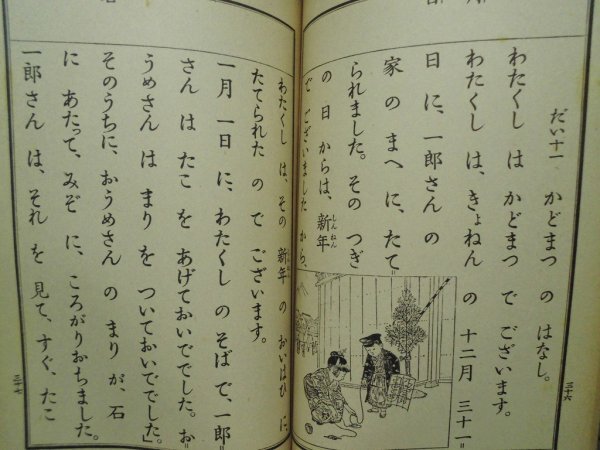 だい十一 かどまつ の はなし。
わたくし は かどまつ で ございます。
わたくし は、きょねん の 十二月 三十一=
日 に、一郎さん の
家 の まへ に、たて=
られました。その つぎ
の 日 からは、新年
しんねん
で ございました から、
三十六
わたくし は、その 新年 の おいはひ に、
たてられた の で ございます。
一月 一日 に、わたくし の そば で、一郎=
さん は たこ を あげておいででした。お=
うめさん は まり を ついておいででした。」
そのうちに、おうめさん の まり が、石
に あたって、みぞ に、ころがりおちました。
一郎さん は、それ を 見て、すぐ、たこ
三十七